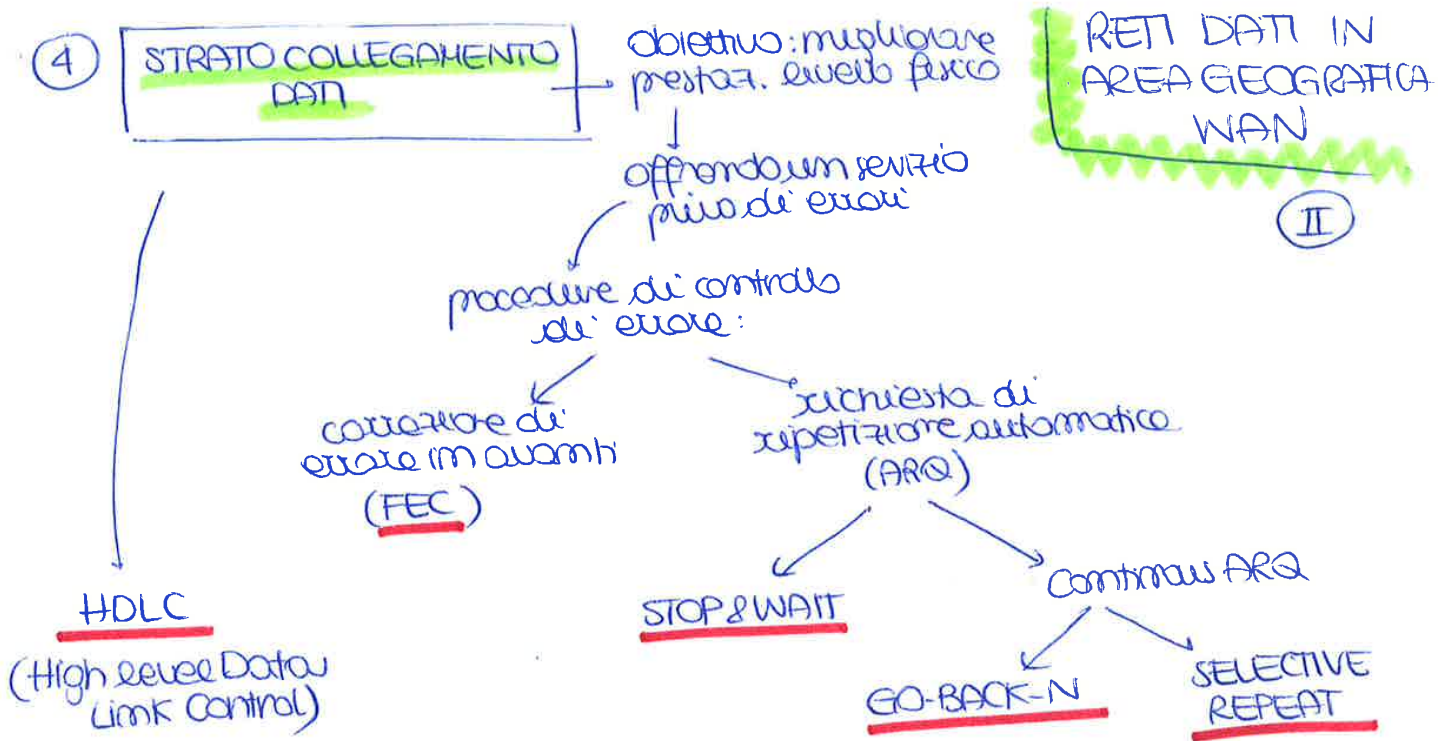 4
STRATO COLLEGAMENTO
DATI
obiettivo: migliorare
prestaz. livello fisico
RETI DATI IN
AREA GEOGRAFICA
WAN
II
offrendo un servizio
privo di errori
procedure di controllo
di errore:
correzione di
errore in avanti
(FEC)
richiesta di
ripetizione automatica
(ARQ)
HDLC
(High level Data
Link Control)
STOP & WAIT
Continous ARQ
GO-BACK-N
SELECTIVE
REPEAT